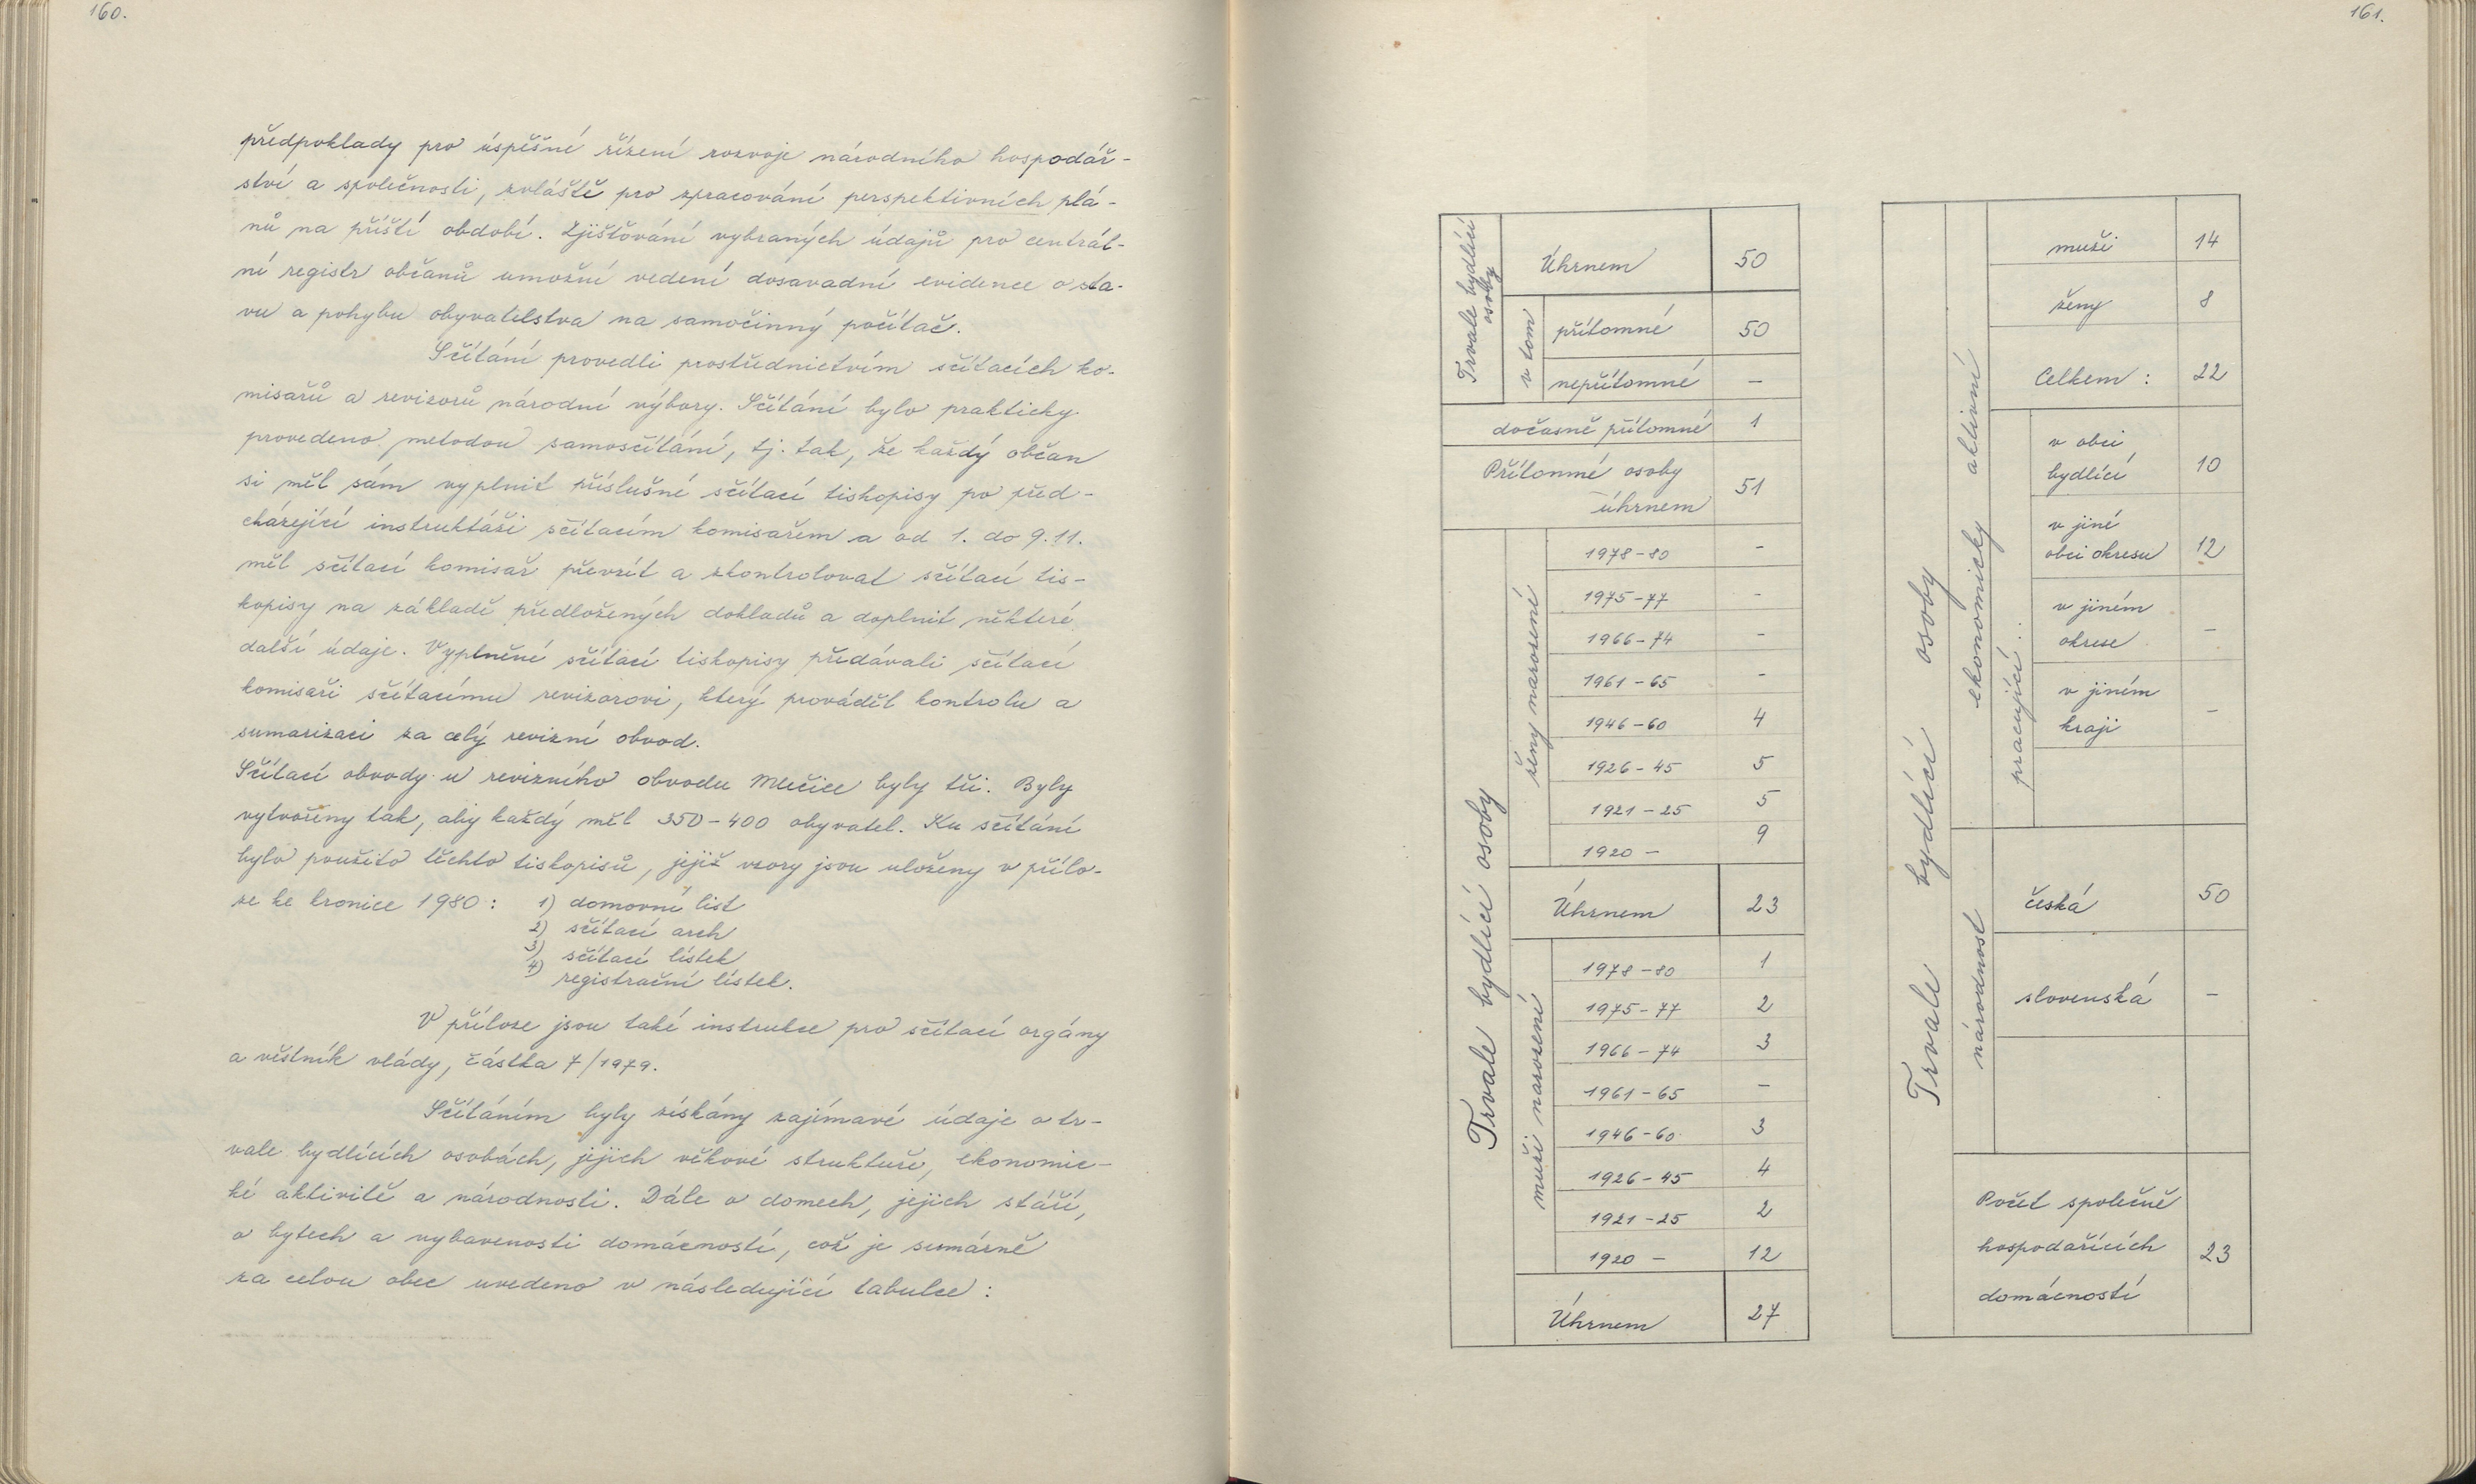 160.
předpoklady pro úspěšné řízení rozvoje národního hospodář-
ství a společnosti, zvláště pro zpracování perspektivních plá-
nů na příští období. Zjišťování vybraných údajů pro centrál-
ní registr občanů umožní vedení dosavadní evidence o sta-
vu a pohybu obyvatelstva na samočinný počítač.
Sčítání provedli prostřednictvím sčítacích ko-
misařů a revizorů národní výbory. Sčítání bylo prakticky
provedeno metodou samosčítání, tj. tak, že každý občan
si měl sám vyplnit příslušné sčítací tiskopisy po před-
cházející instruktáži sčítacím komisařem a od 1. do 9.11.
měl sčítací komisař převzít a zkontrolovat sčítací tis-
kopisy na základě předložených dokladů a doplnit některé
další údaje. Vyplněné sčítací tiskopisy předávali sčítací
komisaři sčítacímu revizorovi, který prováděl kontrolu a
sumarizaci za celý revizní obvod.
Sčítací obvody u revizního obvodu Mlečice byly tři. Byly
vytvořeny tak, aby každý měl 350-400 obyvatel. Ku sčítání
bylo použito těchto tiskopisů, jejiž vzory jsou uloženy v přílo-
ze ke kronice 1980: 1) domovní list
2) sčítací arch
3) sčítací lístek
4) registrační lístek.
V příloze jsou také instrukce pro sčítací orgány
a věstník vlády, částka 7/1979.
Sčítáním byly získány zajímavé údaje o tr-
vale bydlících osobách, jejich věkové struktuře, ekonomic-
ké aktivitě a národnosti. Dále o domech, jejich stáří,
o bytech a vybavenosti domácností, což je sumárně
za celou obec uvedeno v následující tabulce:
161.
Trvale bydlící
osoby
Úhrnem 50
v tom
přítomné 50
nepřítomné –
dočasně přítomné 1
Přítomné osoby
úhrnem 51
Trvale bydlící osoby
ženy narozené
1978-80 –
1975-77 –
1966-74 –
1961-65 –
1946-60 4
1926-45 5
1921-25 5
1920 – 9
Úhrnem 23
muži narození
1978-80 1
1975-77 2
1966-74 3
1961-65 –
1946-60 3
1926-45 4
1921-25 2
1920 – 12
Úhrnem 27
Trvale bydlící osoby
ekonomicky aktivní
muži 14
ženy 8
Celkem: 22
pracující...
v obci
bydlící 10
v jiné
obci okresu 12
v jiném
okrese –
v jiném
kraji –
národnost
česká 50
slovenská –
Počet společně
hospodařících 23
domácností